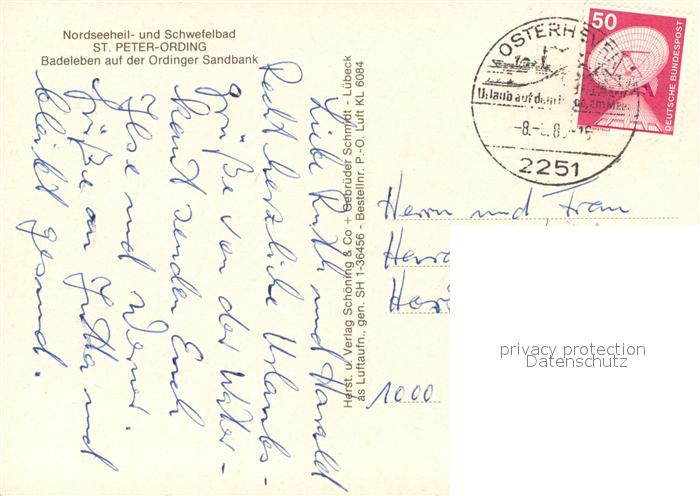 Nordseeheil- und Schwefelbad
ST. PETER-ORDING
Badeleben auf der Ordinger Sandbank
Liebe Ruth und Harald
Recht herzliche Urlaubs-
Grüße von der Water-
kant senden Euch
Ilse und Werner.
Grüße an Jutta und
bleibt gesund.
Herst. u. Verlag Schöning & Co + Gebrüder Schmidt - Lübeck
as Luftaufn., gen. SH 1-36456 - Bestellnr. P.-O. Luft KL 6084
OSTERHEVER
Urlaub auf dem
am Meer
2251
50
DEUTSCHE BUNDESPOST
Herrn und Frau
1000
privacy protection
Datenschutz